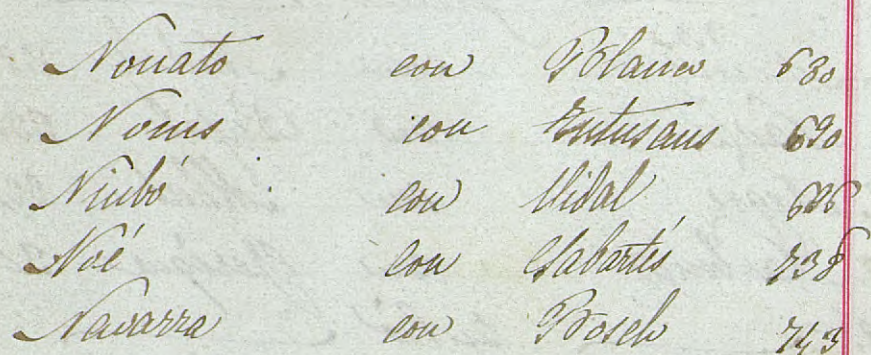 Nonato con Blanco 630
Noms con Entusans 690
Niubó con Vidal 696
Noé con Sabartés 738
Navarra con Bosch 743